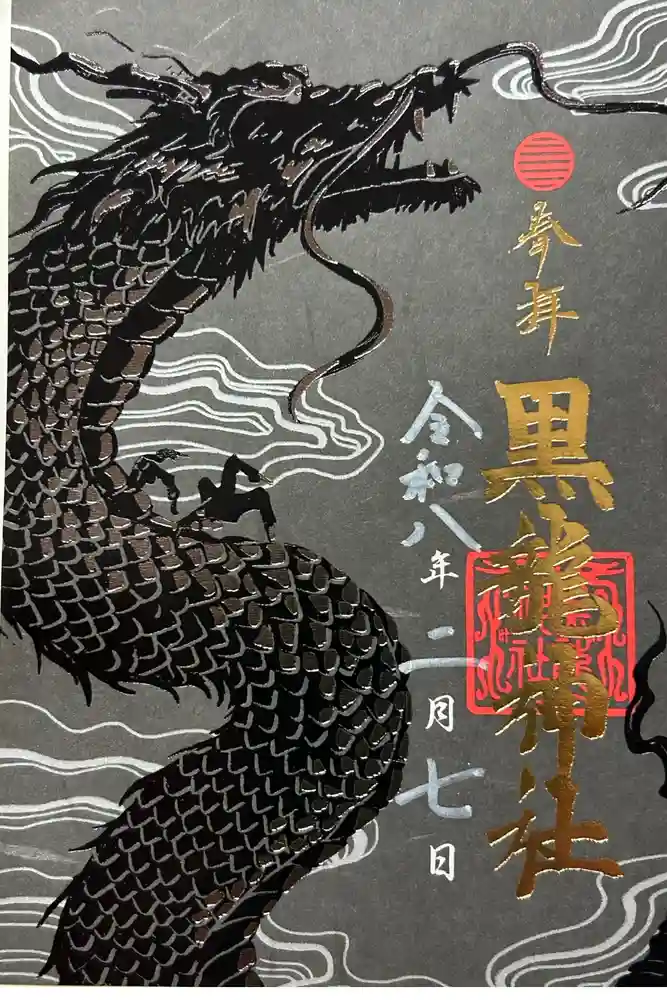 奉拝
黒龍神社
令和八年二月七日